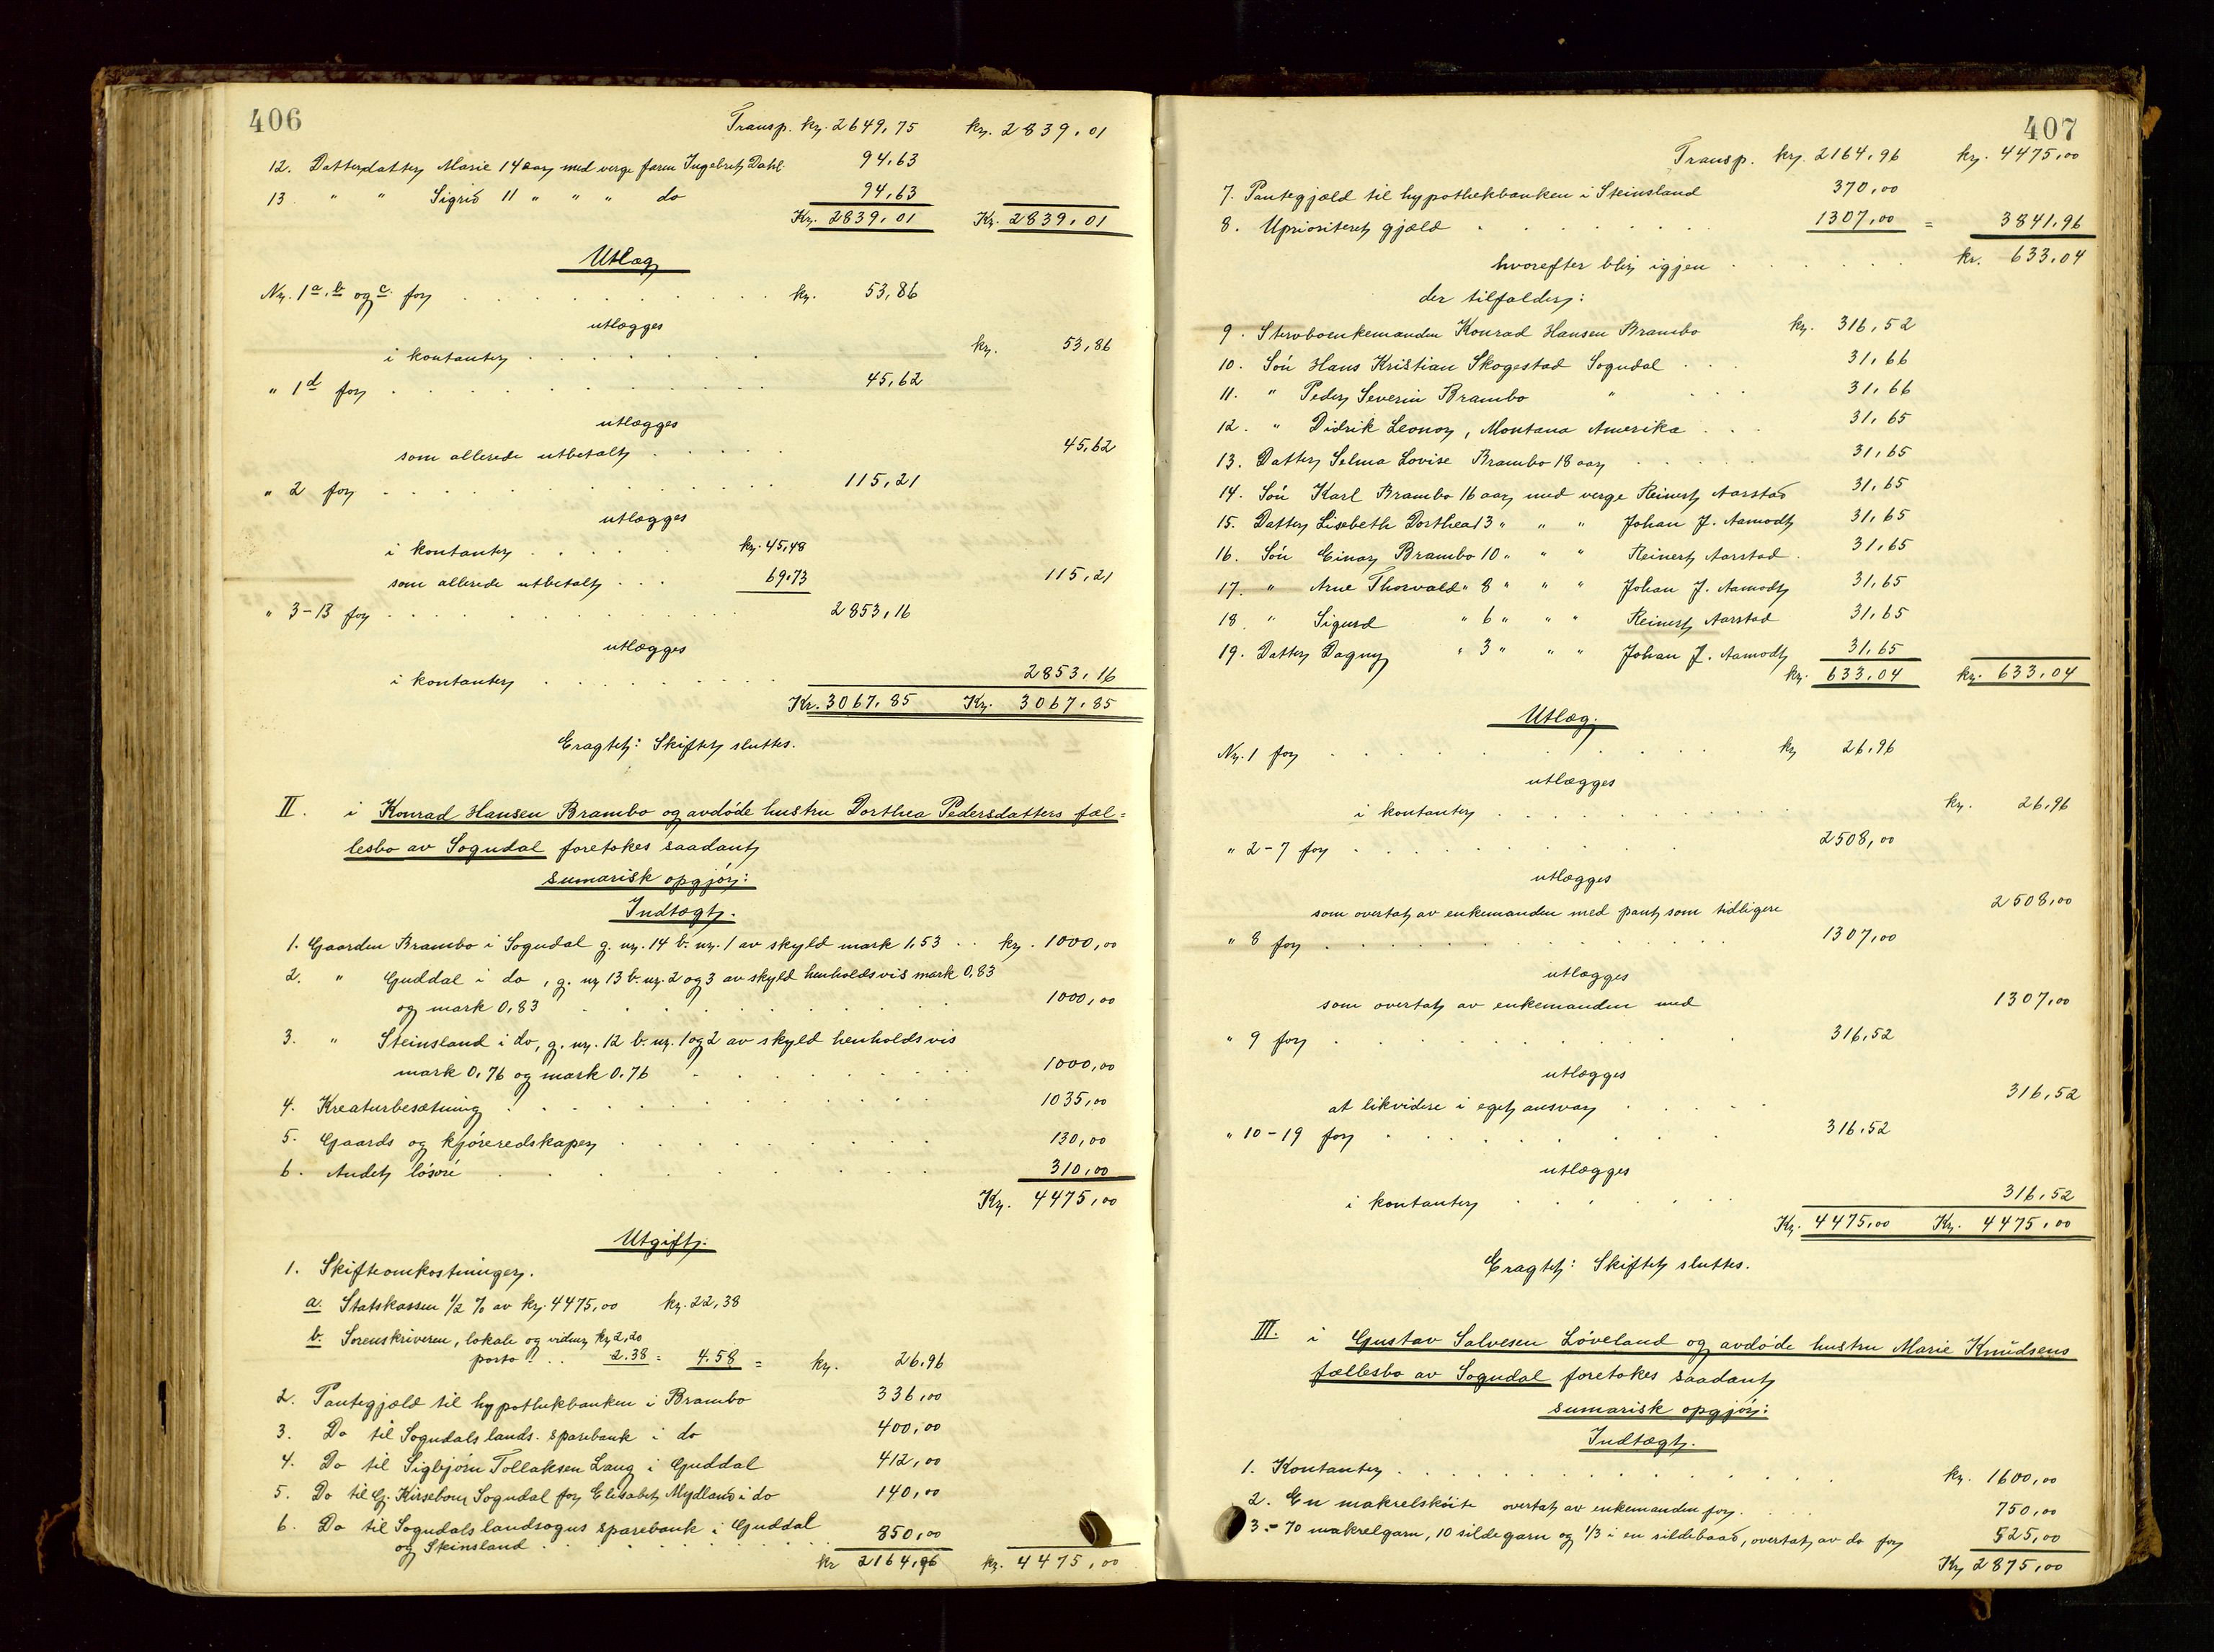 406
Transp. kr. 2649,75 kr. 2839,01
12. Datterdatter Marie 14 aar med verge faren Ingebret Dahl 94,63
13. " " Sigrid 11 " " " do 94,63
Kr. 2839,01 Kr. 2839,01
Utlæg
Nr. 1 a, b og c. for kr. 53,86
utlægges
i kontanter kr. 53,86
" 1 d for 45,62
utlægges
som allerede utbetalt 45,62
" 2 for 115,21
utlægges
i kontanter kr. 45,48
som allerede utbetalt 69.73 115,21
" 3-13 for 2853,16
utlægges
i kontanter 2853,16
Kr. 3067,85 Kr. 3067,85
Eragtet: Skiftet sluttes.
II. i Konrad Hansen Brambo og avdöde hustru Dorthea Pedersdatters fæl=
lesbo av Sogndal foretokes saadant
sumarisk opgjör:
Indtægt.
1. Gaarden Brambo i Sogndal g. nr. 14 b. nr. 1 av skyld mark 1,53 kr. 1000,00
2. " Guddal i do, g. nr 13 b. nr. 2 og 3 av skyld henholdsvis mark 0,83
og mark 0,83 1000,00
3. " Steinsland i do, g. nr. 12 b. nr. 1 og 2 av skyld henholdsvis
mark 0,76 og mark 0.76 1000,00
4. Kreaturbesætning 1035,00
5. Gaards og kjöreredskaper 130,00
6. Andet lösöre 310,00
Kr. 4475,00
Utgift.
1. Skifteomkostninger.
a. Statskassen 1/2 % av kr. 4475,00 kr. 22,38
b. Sorenskriveren, lokale og vidner kr 2,20
porto 2.38 = 4.58 = kr. 26.96
2. Pantegjæld til hypothekbanken i Brambo 336,00
3. Do til Sogndals lands. sparebank i do 400,00
4. Do til Sigbjörn Tollaksen Laug i Guddal 412,00
5. Do til Gj. Kirsebom Sogndal for Elisabet Mydland i do 140,00
6. Do til Sogndals landsogns sparebank i Guddal
og Skinsland 850,00
kr 2164,96 kr. 4475,00
407
Transp. kr. 2164,96 kr. 4475,00
7. Pantegjæld til hypothekbanken i Steinsland 370,00
8. Uprioritert gjæld 1307,00 = 3841,96
hvorefter blir igjen kr. 633,04
der tilfalder:
9. Stervboenkemanden Konrad Hansen Brambo kr. 316,52
10. Sön Hans Kristian Skogestad Sogndal 31,66
11. " Peder Severin Brambo " 31,66
12. " Didrik Leonor, Montana Amerika 31,65
13. Datter Selma Lovise Brambo 18 aar 31,65
14. Sön Karl Brambo 16 aar med verge Reinert Aarstad 31,65
15. Datter Lisebeth Dorthea 13 " " " Johan J. Aamodt 31,65
16. Sön Einar Brambo 10 " " " Reinert Aarstad 31,65
17. " Arne Thorvald " 8 " " " Johan J. Aamodt 31,65
18. " Sigurd " 6 " " " Reinert Aarstad 31,65
19. Datter Dagny " 3 " " " Johan J. Aamodt 31,65
kr. 633,04 kr. 633,04
Utlæg.
Nr. 1 for kr 26,96
utlægges
i kontanter kr. 26,96
" 2-7 for 2508,00
utlægges
som overtat av enkemanden med pant som tidligere 2508,00
" 8 for 1307,00
utlægges
som overtat av enkemanden med 1307,00
" 9 for 316,52
utlægges
at likvidere i eget ansvar 316,52
" 10-19 for 316.52
utlægges
i kontanter 316,52
Kr. 4475,00 Kr. 4475,00
Eragtet: Skiftet sluttes.
III. i Gustav Salvesen Löveland og avdöde hustru Marie Knudsens
fællesbo av Sogndal foretokes saadant
sumarisk opgjör:
Indtægt.
1. Kontanter kr. 1600,00
2. En makrelsköite overtat av enkemanden for 750,00
3. - 70 makrelgarn, 10 sildegarn og 1/3 i en sildebaad, overtat av do for 525,00
Kr 2875,00